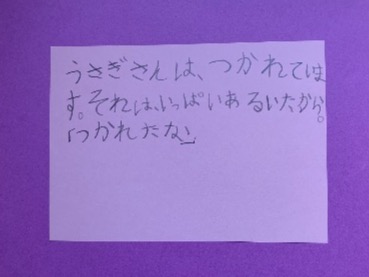 うさぎさんは、つかれては
す。それは、いっぱいあるいたから。
「つかれたな」